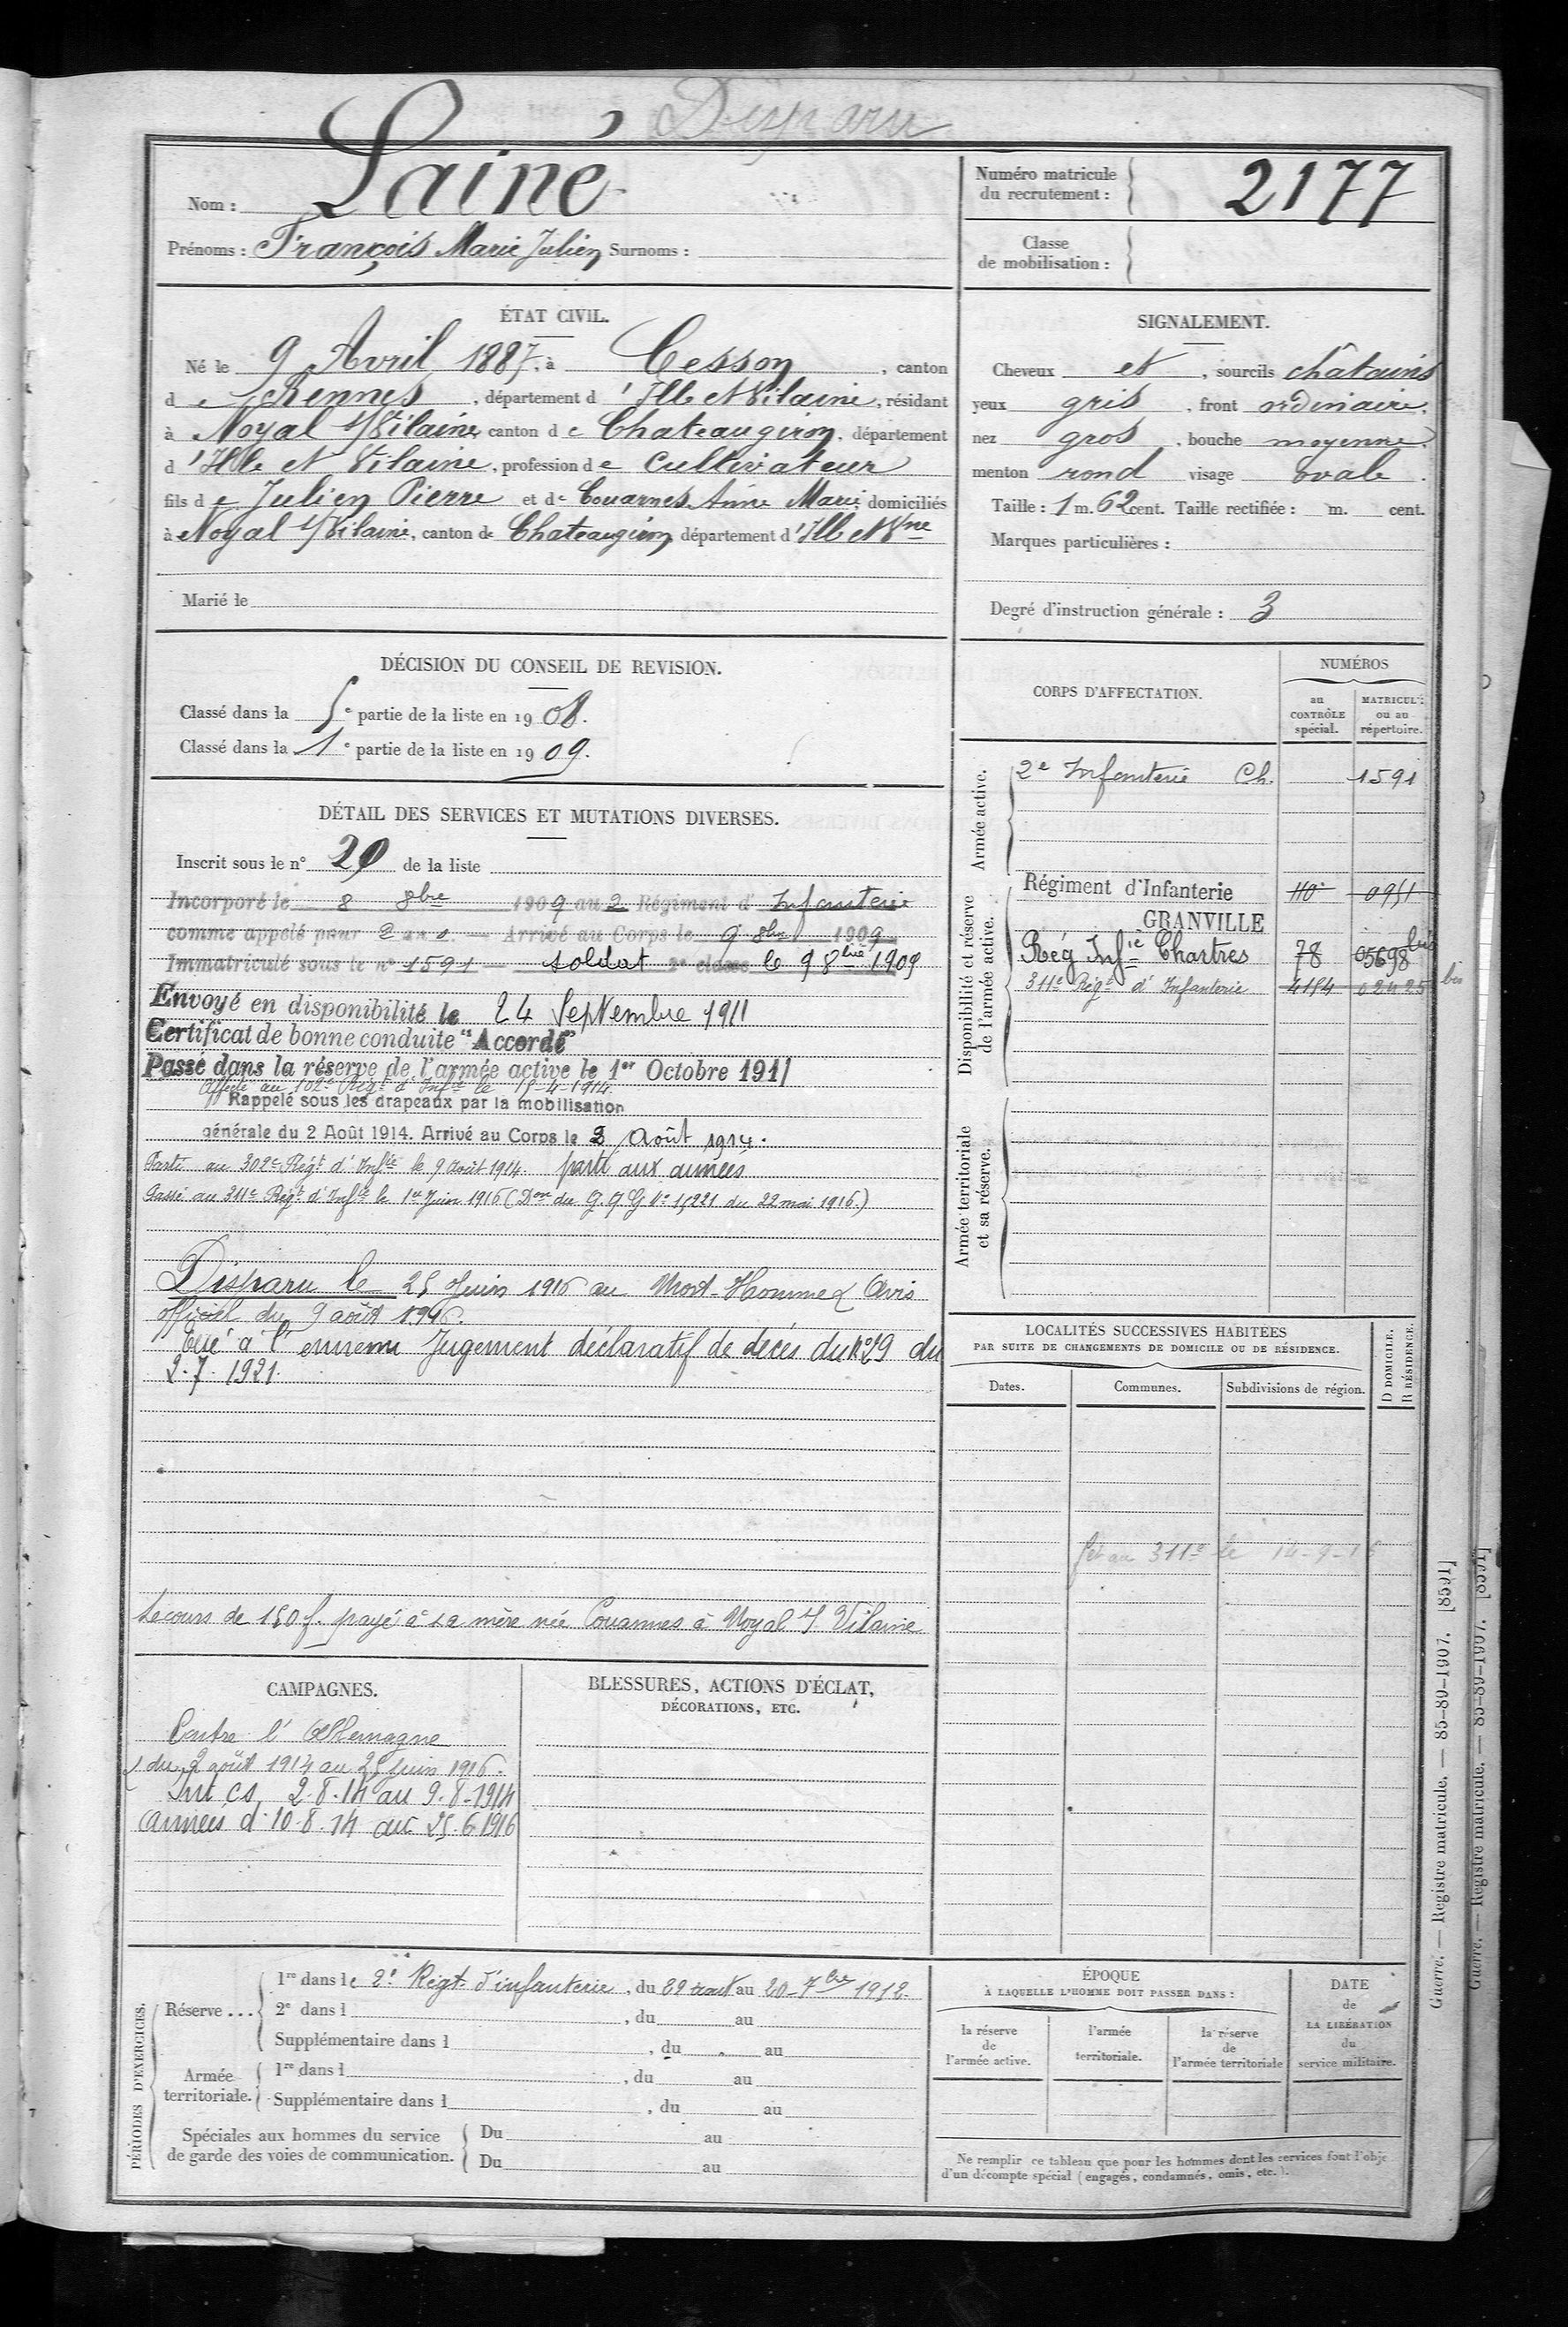 Disparu
Nom : Lainé
Prénoms : François Marie Julien Surnoms :
Numéro matricule
du recrutement :
2177
Classe
de mobilisation :
ÉTAT CIVIL.
Né le 9 Avril 1887, à Cesson, canton
de Rennes, département d'Ille et Vilaine, résidant
à Noyal s/Vilaine canton de Chateaugiron, département
d'Ille et Vilaine, profession de Cultivateur
fils de Julien Pierre et de Couarnes Anne Marie domiciliés
à Noyal s/Vilaine, canton de Chateaugiron département d'Ille et Vne
Marié le
SIGNALEMENT.
Cheveux et, sourcils châtains
yeux gris, front ordinaire,
nez gros, bouche moyenne.
menton rond visage ovale.
Taille : 1 m. 62 cent. Taille rectifiée : m. cent.
Marques particulières :
Degré d'instruction générale : 3
DÉCISION DU CONSEIL DE REVISION.
Classé dans la 5e partie de la liste en 1908.
Classé dans la 1e partie de la liste en 1909.
DÉTAIL DES SERVICES ET MUTATIONS DIVERSES.
Inscrit sous le n° 29 de la liste
Incorporé le 8 8bre 1909 au 2 Régiment d'Infanterie
comme appelé pour 2 ans. Arrivé au Corps le 9 8bre 1909
Immatriculé sous le n° 1591 soldat 2e classe le 9 8bre 1909
Envoyé en disponibilité le 24 Septembre 1911
Certificat de bonne conduite "Accordé"
Passé dans la réserve de l'armée active le 1er Octobre 1911
Affecté au 102e Régt d'Infie le 15-4-1914.
Rappelé sous les drapeaux par la mobilisation
générale du 2 Août 1914. Arrivé au Corps le 3 Août 1914.
Parti au 302e Régt d'Infie le 9 Août 1914. parti aux armées
Passé au 311e Régt d'Infie le 1er Juin 1916 (Don du G.Q.G No 15221 du 22 mai 1916.)
Disparu le 25 Juin 1916 au Mort-Homme Avis
officiel du 9 août 1916.
Tué à l'ennemi Jugement déclaratif de décès du N°29 du
2.7.1921.
Secours de 150 f. payé à sa mère née Couannes à Noyal s/ Vilaine
CORPS D'AFFECTATION.
NUMÉROS
au
CONTRÔLE
spécial.
MATRICULE
ou au
répertoire.
Armée active.
2e Infanterie Ch. 1591
Disponibilité et réserve
de l'armée active.
Régiment d'Infanterie 110 0951
GRANVILLE
Rég Infie Chartres 78 05698 bis
311e Régt d'Infanterie 4154 02425 bis
Armée territoriale
et sa réserve.
LOCALITÉS SUCCESSIVES HABITÉES
PAR SUITE DE CHANGEMENTS DE DOMICILE OU DE RÉSIDENCE.
Dates.
Communes.
Subdivisions de région.
D DOMICILE.
R RÉSIDENCE.
au 311e le 14-9-16
CAMPAGNES.
Contre l'Allemagne
du 2 août 1914 au 25 Juin 1916.
Int cs 2.8.14 au 9.8.1914
Armées d. 10.8.14 au 25.6.1916
BLESSURES, ACTIONS D'ÉCLAT,
DÉCORATIONS, ETC.
PÉRIODES D'EXERCICES.
Réserve ...
1re dans le 2e Régt. d'infanterie, du 29 aout au 20-7bre 1912.
2e dans l , du au
Supplémentaire dans l , du au
Armée
territoriale.
1re dans l , du au
Supplémentaire dans l , du au
Spéciales aux hommes du service
de garde des voies de communication.
Du au
Du au
ÉPOQUE
À LAQUELLE L'HOMME DOIT PASSER DANS :
la réserve
de
l'armée active.
l'armée
territoriale.
la réserve
de
l'armée territoriale
DATE
de
LA LIBÉRATION
du
service militaire.
Ne remplir ce tableau que pour les hommes dont les services font l'obje
d'un décompte spécial (engagés, condamnés, omis, etc.).
Guerre. — Registre matricule. — 85-89-1907. [8591]
Guerre. — Registre matricule. — 85-89-1907. [8591]